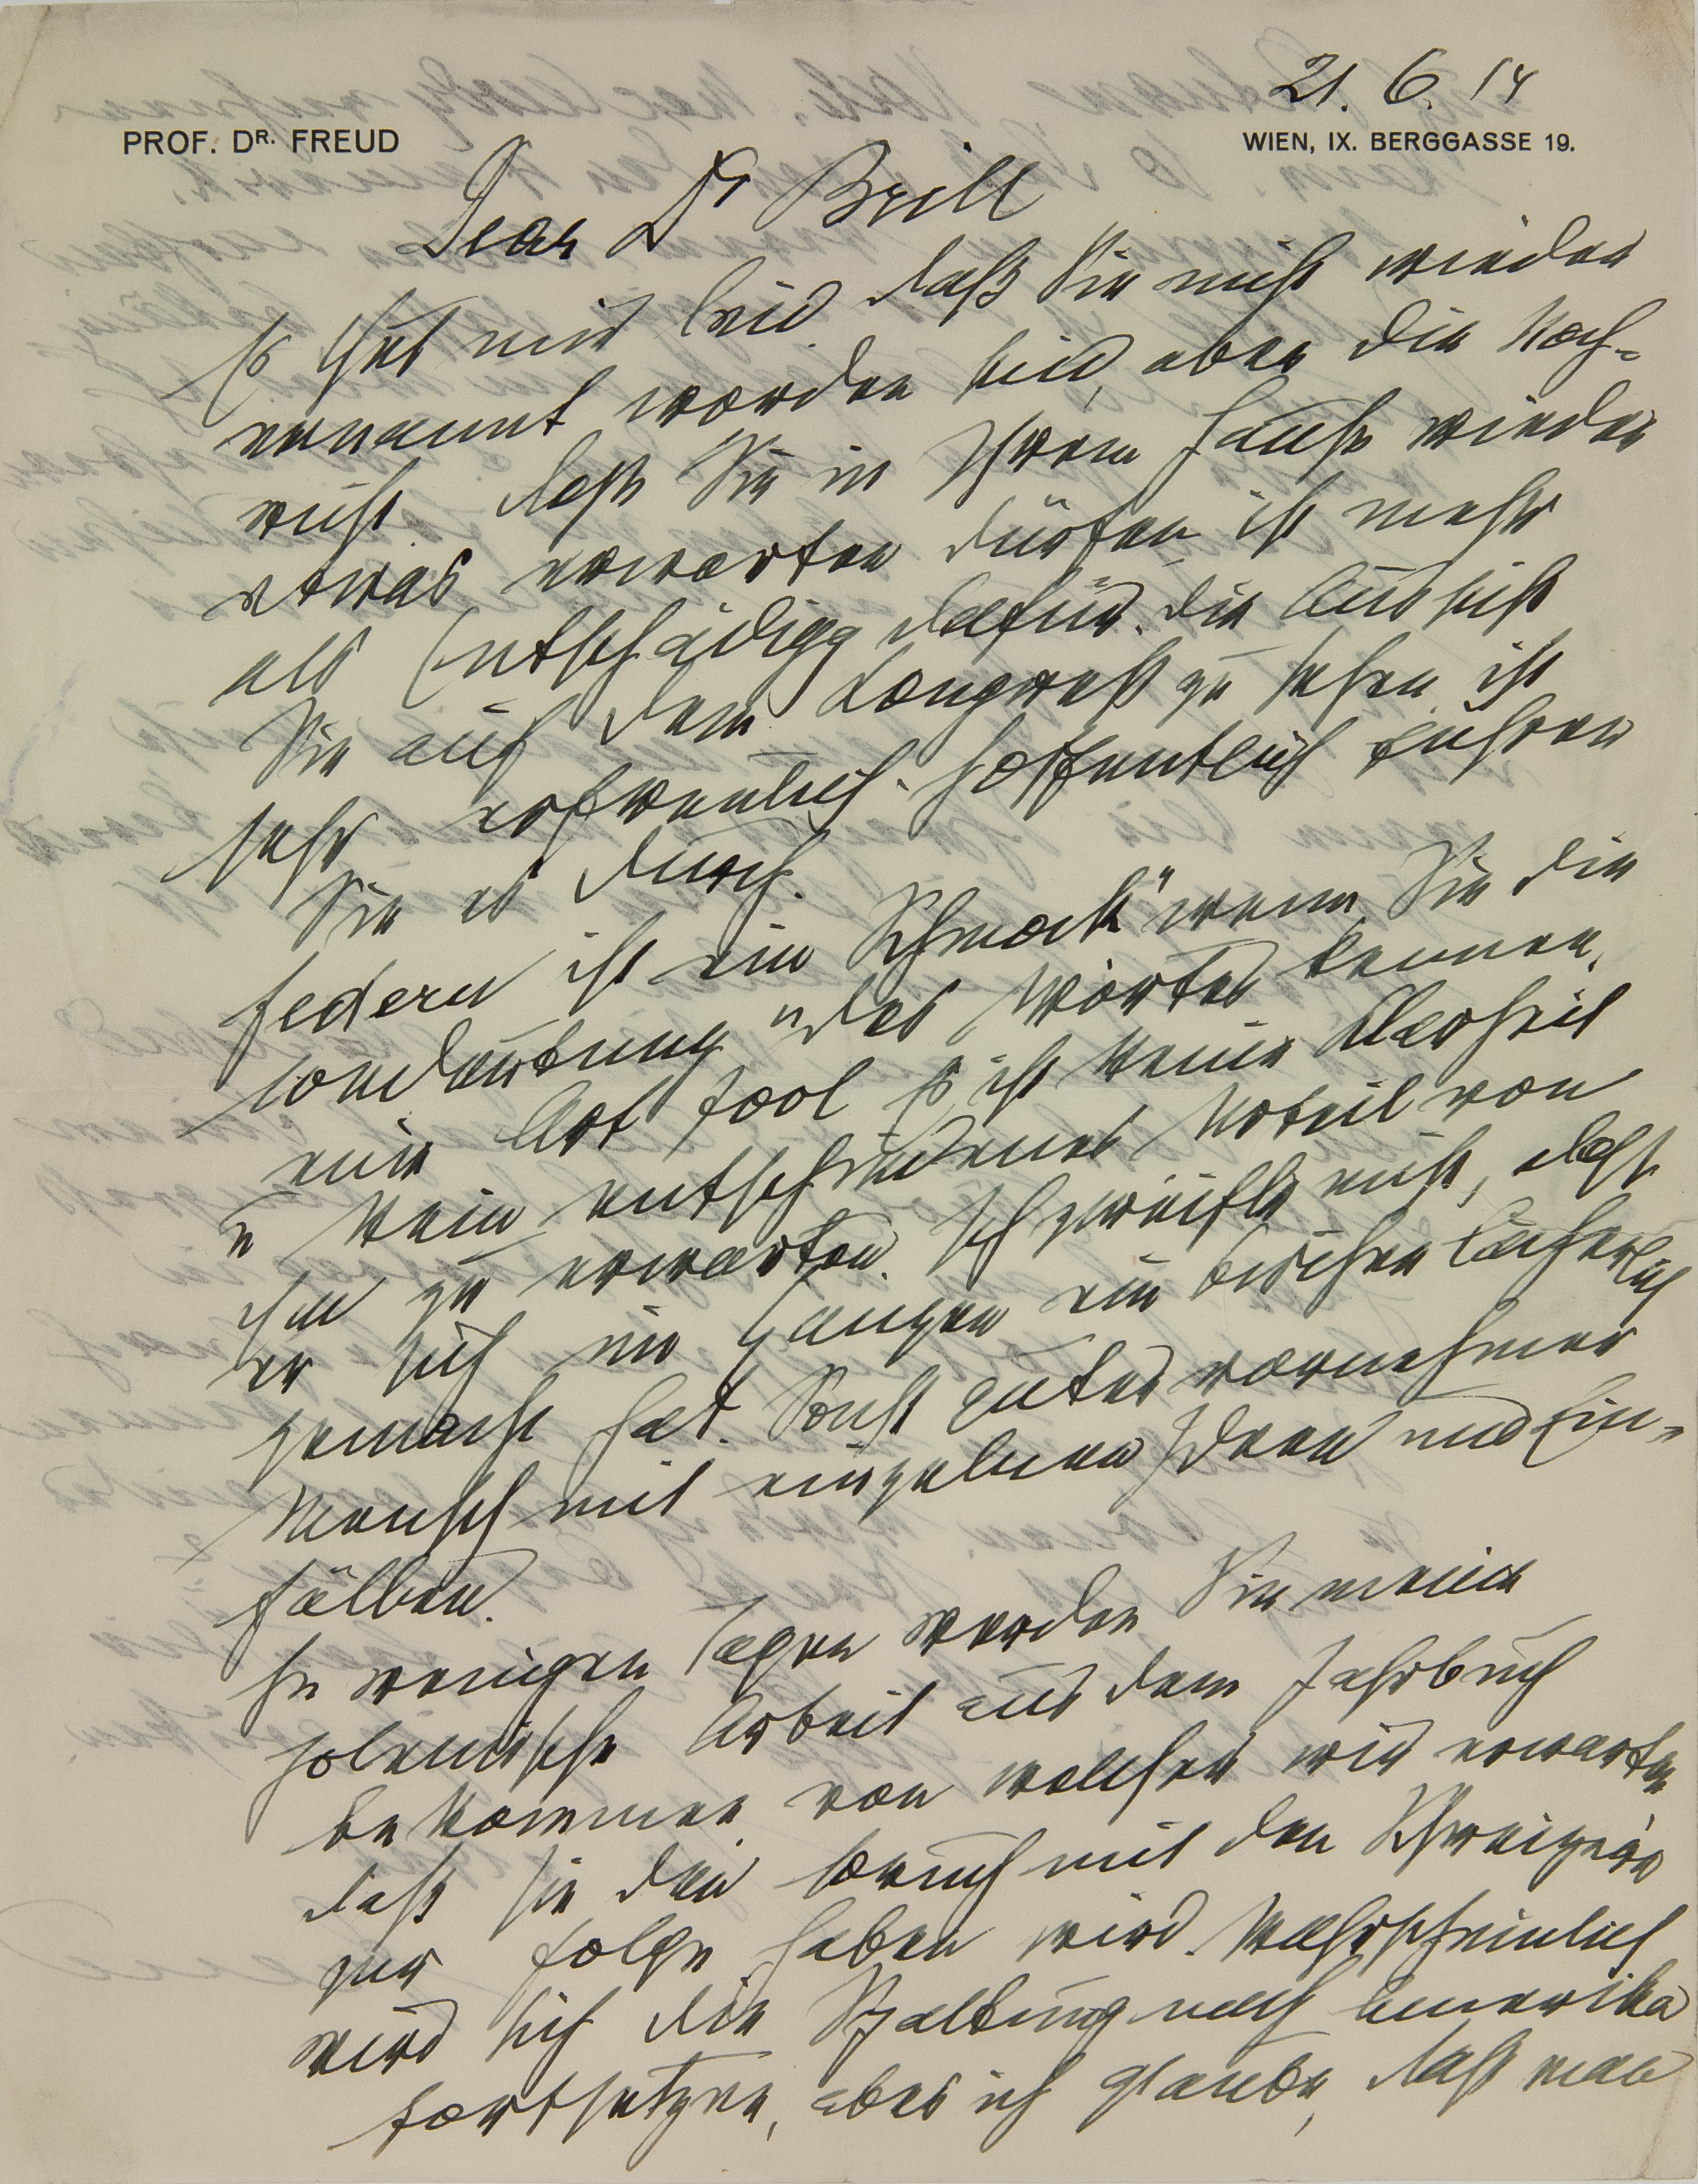 21. 6. 14
PROF. DR. FREUD
WIEN, IX. BERGGASSE 19.
Dear Dr Brill
Es thut mir leid, daß Sie nicht wieder
ernannt worden sind, aber die Nach-
richt daß Sie in Ihrem Hause wieder
etwas erwarten dürfen ist mehr
als Entschädigg dafür. Die Aussicht
Sie auf dem Congreß zu sehen ist
sehr erfreulich. Hoffentlich führen
Sie es durch.
Federn ist ein „Schmock" wenn Sie die
Bedeutung des Wortes kennen,
eine Art fool. Es ist keine
u kein entschiedenes Urteil von
ihm zu erwarten. Ich zweifle nicht, daß
er sich im Ganzen ein bischen lächerlich
gemacht hat. Sonst guter vornehmer
Mensch mit einzelnen Ideen und Ein-
fällen.
In wenigen Tagen werden Sie meine
polemische Arbeit aus dem Jahrbuch
bekommen von welcher wir erwarten
daß sie den Bruch mit den Schweizern
zur Folge haben wird. Wahrscheinlich
wird sich die Spaltung nach Amerika
fortsetzen, aber ich glaube, daß man